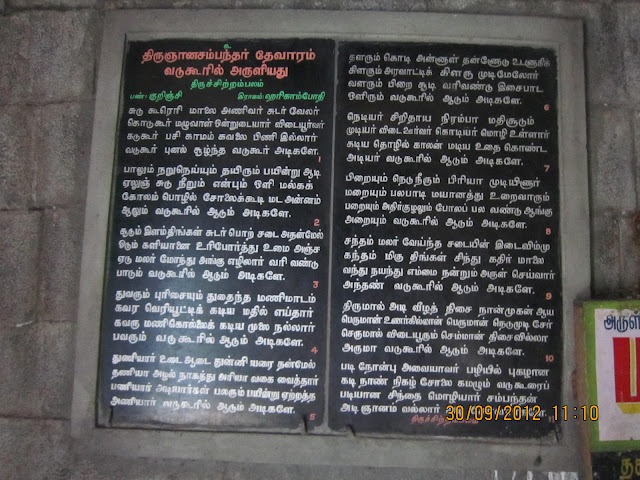 உ
திருஞானசம்பந்தர் தேவாரம்
வடுகூரில் அருளியது
திருச்சிற்றம்பலம்
பண்: குறிஞ்சி இராகம்: ஹரிகாம்போதி
சுடு கூரெரி மாலை அணிவர் சுடர் வேலர்
கொடுகூர் மழுவாள் ஒன்றுடையார் விடையூர்வர்
கடுகூர் பசி காமம் கவலை பிணி இல்லார்
வடுகூர் புனல் சூழ்ந்த வடுகூர் அடிகளே.
1
பாலும் நறுநெய்யும் தயிரும் பயின்று ஆடி
ஏலுஞ் சுடு நீறும் என்பும் ஒளி மல்கக்
கோலம் பொழில் சோலைக்கூடி மட அன்னம்
ஆலும் வடுகூரில் ஆடும் அடிகளே.
2
சூடும் இளம்திங்கள் சுடர் பொற் சடை அதன்மேல்
ஓடும் களியானை உரிபோர்த்து உமை அஞ்ச
ஏடு மலர் மோந்து அங்கு எழிலார் வரி வண்டு
பாடும் வடுகூரில் ஆடும் அடிகளே.
3
துவரும் புரிசையும் துதைந்த மணிமாடம்
கவர வெரியூட்டிக் கடிய மதில் எய்தார்
கவரு மணிகொல்லைக் கடிய முலை நல்லார்
பவரும் வடுகூரில் ஆடும் அடிகளே.
4
துணியார் உடை ஆடை துன்னி யரை தன்மேல்
தணியா அழல் நாகத்து அரியா வகை வைத்தார்
பணியார் அடியார்கள் பலரும் பயின்று ஏற்றத்த
அணியார் வடுகூரில் ஆடும் அடிகளே.
5
தளரும் கொடி அன்னாள் தன்னோடு உடனாகிக்
கிளரும் அரவாட்டிக் கிளரு முடிமேலோர்
வளரும் பிறை சூடி வரிவண்டு இசைபாட
ஒளிரும் வடுகூரில் ஆடும் அடிகளே.
6
நெடியர் சிறிதாய நிரம்பா மதிசூடும்
முடியர் விடைவூர்வர் கொடியர் மொழி உள்ளார்
கடிய தொழில் காலன் மடிய உதை கொண்ட
அடியர் வடுகூரில் ஆடும் அடிகளே.
7
பிறையும் நெடுநீரும் பிரியா முடியினார்
மறையும் பலபாடி மயானத்து உறைவாரும்
பறையும் அதிர்குழலும் போலப் பல வண்டு ஆங்கு
அறையும் வடுகூரில் ஆடும் அடிகளே.
8
சந்தம் மலர் வேய்ந்த சடையின் இடைவிம்மு
கந்தம் மிகு திங்கள் சிந்து கதிர் மாலை
வந்து நயந்து எம்மை நன்றும் அருள் செய்வார்
அந்தண் வடுகூரில் ஆடும் அடிகளே.
9
திருமால் அடி வீழத் திசை நான்முகன் ஆய
பெருமான் உணர்கில்லான் பெருமான் நெடுமுடி சேர்
செருமால் விடையூரும் செம்மான் திசைவில்லா
அருமா வடுகூரில் ஆடும் அடிகளே.
10
படி நோன்பு அவையாவர் பழியில் புகழான
கடி நாண் நிகழ் சோலை கமழும் வடுகூரைப்
படியான சிந்தை மொழியார் சம்பந்தன்
அடி ஞானம் வல்லார்
11
திருச்சிற்றம்பலம்
30/09/2012 11:10